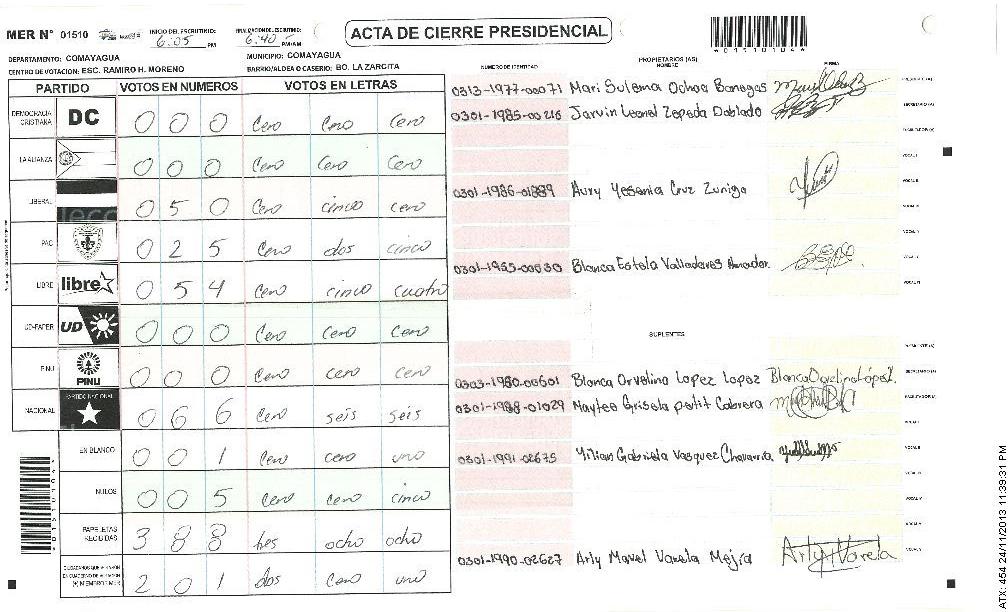 MER N° 01510
INICIO DEL ESCRUTINIO:
6:05 PM
FINALIZACION DEL ESCRUTINIO:
6:40 PM/AM
ACTA DE CIERRE PRESIDENCIAL
DEPARTAMENTO: COMAYAGUA
MUNICIPIO: COMAYAGUA
CENTRO DE VOTACION: ESC. RAMIRO H. MORENO
BARRIO/ALDEA O CASERIO: BO. LA ZARCITA
PARTIDO VOTOS EN NUMEROS VOTOS EN LETRAS
DEMOCRACIA CRISTIANA DC 0 0 0 Cero Cero Cero
LA ALIANZA 0 0 0 Cero Cero Cero
LIBERAL 0 5 0 Cero cinco cero
PAC 0 2 5 Cero dos cinco
LIBRE libre 0 5 4 Cero cinco cuatro
UD-FAPER UD 0 0 0 Cero Cero Cero
PINU PINU 0 0 0 Cero Cero cero
NACIONAL PARTIDO NACIONAL 0 6 6 Cero seis seis
EN BLANCO 0 0 1 Cero cero uno
NULOS 0 0 5 Cero Cero cinco
PAPELETAS RECIBIDAS 3 8 8 tres ocho ocho
2 0 1 dos Cero uno
NUMERO DE IDENTIDAD
PROPIETARIOS (AS)
NOMBRE
FIRMA
0313-1977-00071 Mari Sulema Ochoa Banegas
PRESIDENTE (A)
0301-1985-00216 Jarvin Leonel Zepeda Doblado
SECRETARIO (A)
ESCRUTADOR (A)
VOCAL I
VOCAL II
0301-1986-01889 Aury Yesenia Cruz Zuniga
VOCAL III
VOCAL IV
VOCAL V
0301-1955-00630 Blanca Estela Valladares Amador
VOCAL VI
SUPLENTES
PRESIDENTE (A)
SECRETARIO (A)
0303-1980-00601 Blanca Orvelina Lopez Lopez Blanca Orvelina López L.
0301-1988-01029 Maytee Grisela petit Cabrera
VOCAL I
VOCAL II
0301-1991-02675 Yilian Gabriela Vasquez Chavarria
VOCAL III
VOCAL IV
VOCAL V
0301-1990-02627 Arly Mavel Varela Mejia Arly Varela
ATX: 454 24/11/2013 11:39:31 PM